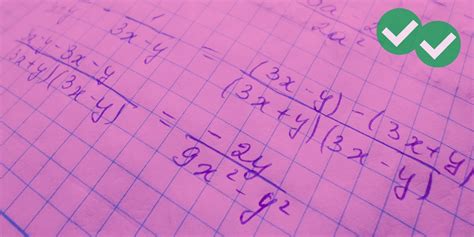 3x-y = (3x-y)-(3x+y) / (3x+y)(3x-y)
x-y-3x-y / 3x+y)(3x-y) = -2y / 9x²-y²
2a²